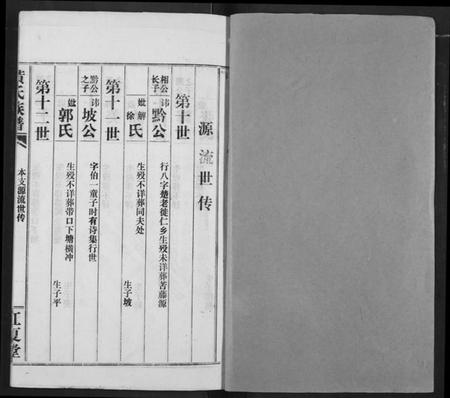 源流世传
第十世
相公长子
讳黔公
行八字楚老徙仁乡生殁未详葬苦藤源
妣解徐氏
生殁不详葬同夫处
生子坡
第十一世
黔公之子
讳坡公
字伯一童子时有诗集行世
妣郭氏
生殁不详葬带口下塘横冲
生子平
第十二世
黄氏族谱
本支源流世传
江夏堂